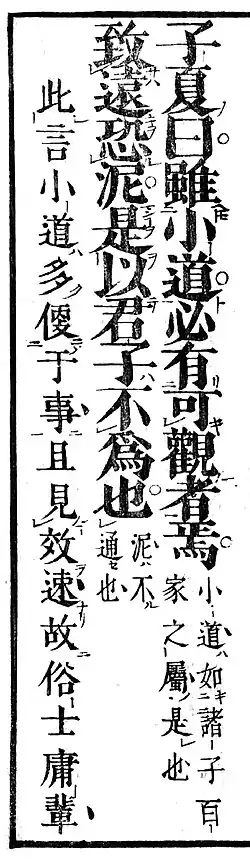 子夏曰雖小道必有可觀者焉小道如諸子百家之屬是也
致遠恐泥是以君子不爲也泥不通也
此言小道多傻于事且見效速故俗士庸輩